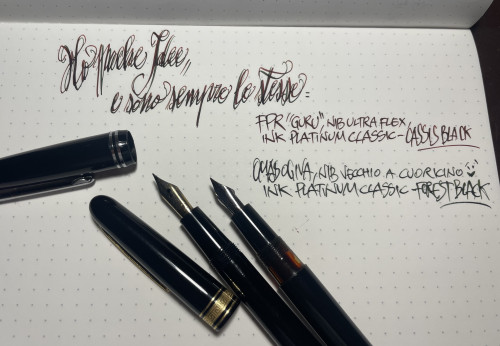 Ho poche Idee,,
e sono sempre le stesse=
FPR "GURU", NIB ULTRA FLEX,
INK PLATINUM CLASSIC - CASSIS BLACK
OMAS OGIVA, NIB VECCHIO A CUORICINO
INK PLATINUM CLASSIC FOREST BLACK